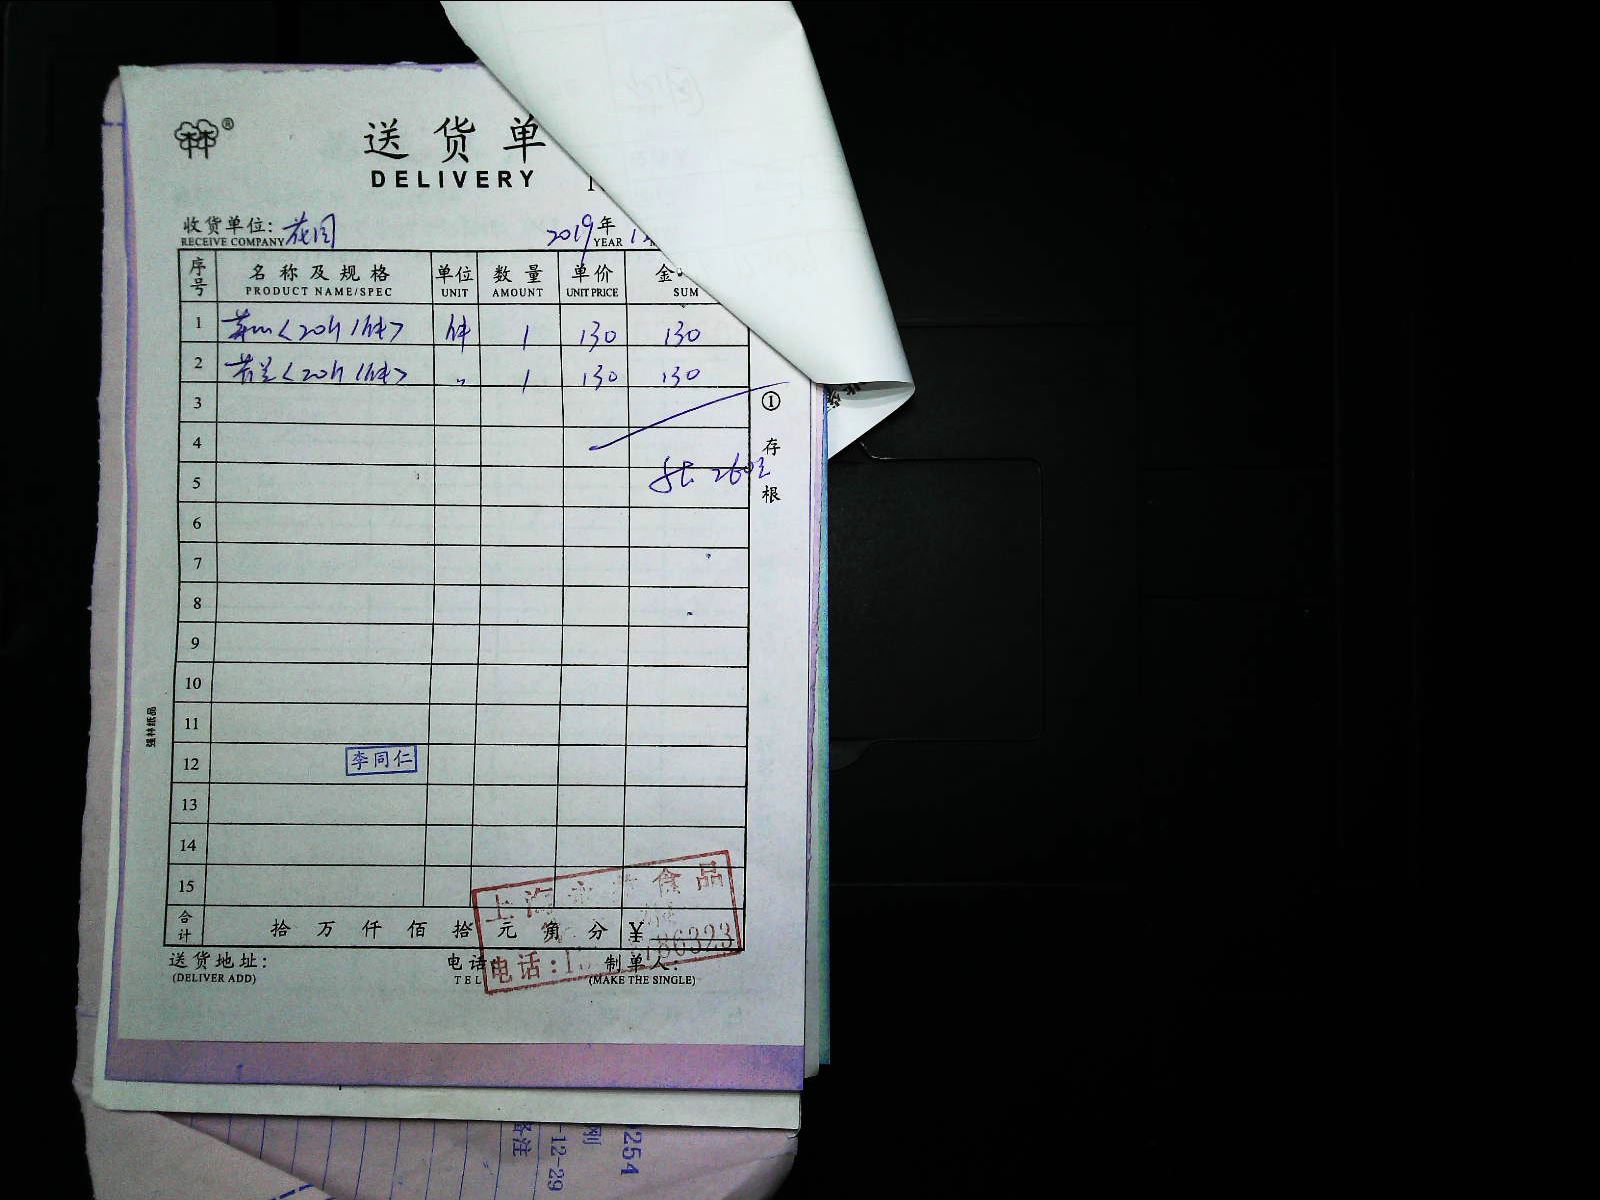 ®
送货单
DELIVERY
收货单位: 花园 2019年
RECEIVE COMPANY YEAR
序号 名称及规格 单位 数量 单价 金
PRODUCT NAME/SPEC UNIT AMOUNT UNIT PRICE SUM
1 <20 1件> 件 1 130 130
2 <20 1件> 〃 1 130 130
3
4
5 260元
6
7
8
9
10
11
12 李同仁
13
14
15
① 存根
强林纸品
上海 食品
合计 拾 万 仟 佰 拾 元 角 分 ¥
电话:1 86323
送货地址: 电话: 制单人:
(DELIVER ADD) TEL (MAKE THE SINGLE)
备注
-12-29
刚
0254